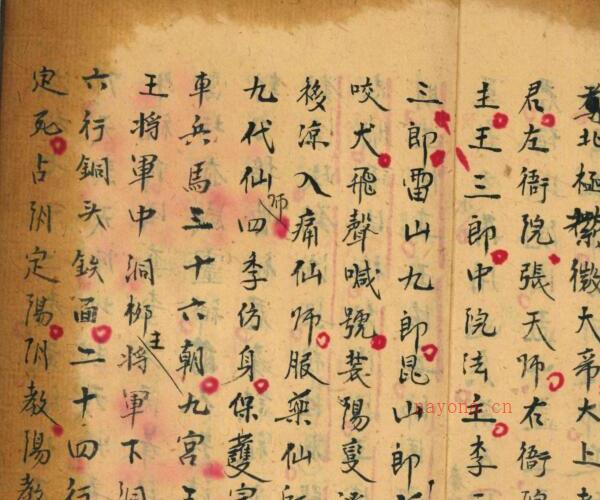 尊北極紫微大帝大上
君左衙院張天师右衙
主王三郎中院法主李
三郎雷山九郎昆山郎
咬犬飛聲喊號裝陽變
梭凉入痛仙师服藥仙
九代仙师四季仿身保護
車兵馬三十六朝九宮
王將軍中洞柳王將軍下洞
六行銅头鉄面二十四行
定死占阴定陽阴教陽教
nayong.cn